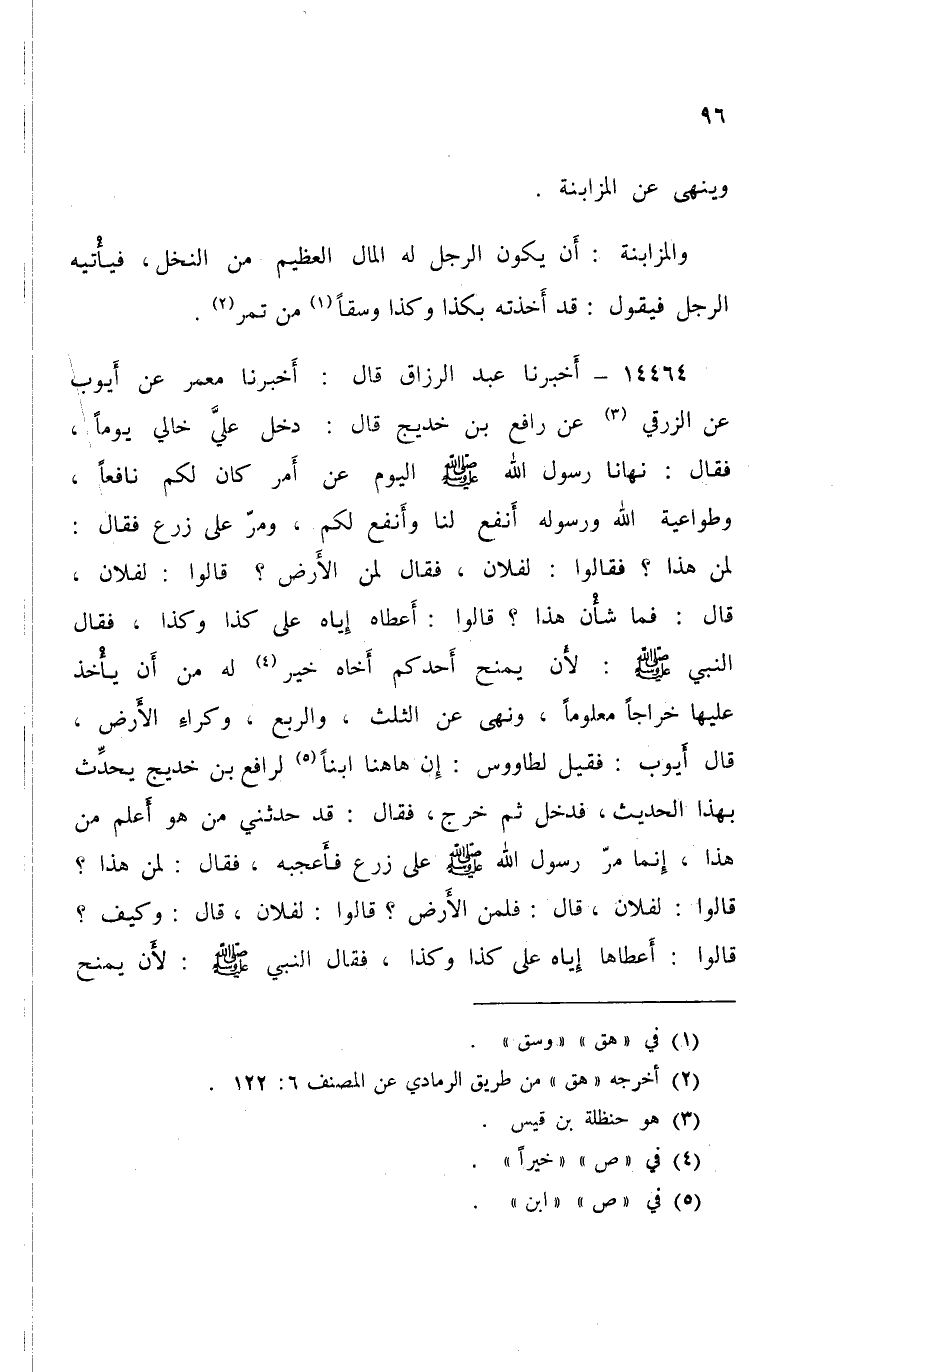 ٩٦
وينهى عن المزابنة .
والمزابنة : أن يكون الرجل له المال العظيم من النخل ، فيأتيه
الرجل فيقول : قد أخذته بكذا وكذا وسقاً (١) من تمر (٢) .
١٤٤٦٤ – أخبرنا عبد الرزاق قال : أخبرنا معمر عن أيوب
عن الزرقي (٣) عن رافع بن خديج قال : دخل عليَّ خالي يوماً ،
فقال : نهانا رسول الله ﷺ اليوم عن أمر كان لكم نافعاً ،
وطواعية الله ورسوله أنفع لنا وأنفع لكم ، ومرّ على زرع فقال :
لمن هذا ؟ فقالوا : لفلان ، فقال لمن الأرض ؟ قالوا : لفلان ،
قال : فما شأن هذا ؟ قالوا : أعطاه إياه على كذا وكذا ، فقال
النبي ﷺ : لأن يمنح أحدكم أخاه خير (٤) له من أن يأخذ
عليها خراجاً معلوماً ، ونهى عن الثلث ، والربع ، وكراء الأرض ،
قال أيوب : فقيل لطاووس : إن هاهنا ابناً (٥) لرافع بن خديج يحدِّث
بهذا الحديث ، فدخل ثم خرج ، فقال : قد حدثني من هو أعلم من
هذا ، إنما مرّ رسول الله ﷺ على زرع فأعجبه ، فقال : لمن هذا ؟
قالوا : لفلان ، قال : فلمن الأرض ؟ قالوا : لفلان ، قال : وكيف ؟
قالوا : أعطاها إياه على كذا وكذا ، فقال النبي ﷺ : لأن يمنح
(١) في « هق » « وسق » .
(٢) أخرجه « هق » من طريق الرمادي عن المصنف ٦ : ١٢٢ .
(٣) هو حنظلة بن قيس .
(٤) في « ص » « خيراً » .
(٥) في « ص » « ابن » .